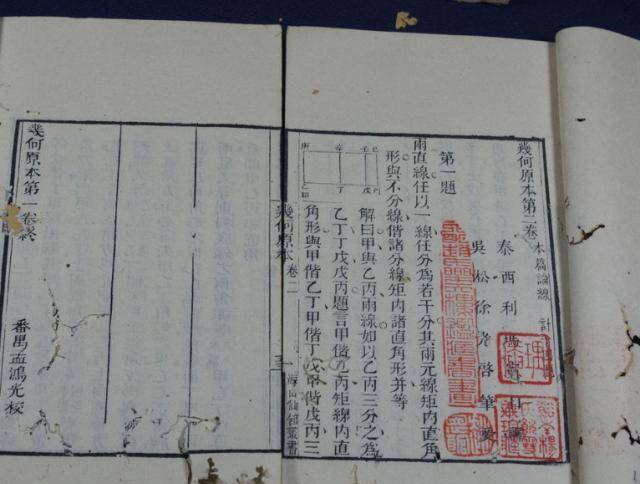 幾何原本第二卷 本篇論線 計
泰西利瑪竇口
吳松徐光啓筆受
第一題
兩直線任以一線任分為若干分其兩元線矩內直角
形與不分線偕諸分線矩內諸直角形并等
解曰甲與乙丙兩線如以乙丙三分之為
乙丁丁戊戊丙題言甲偕乙丙矩線內直
角形與甲偕乙丁甲偕丁戊甲偕戊丙三
幾何原本 卷二
海山仙館叢書
幾何原本第一卷終
番禺孟鴻光校